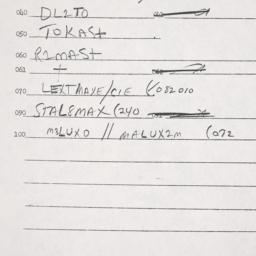 040 DL2TO
050 TOKASt
060 R2MASt
061 t
070 LEXTMAVE/CIE (082010
090 STAL8MAX (240
100 M8LUXO // MALUX2M (072